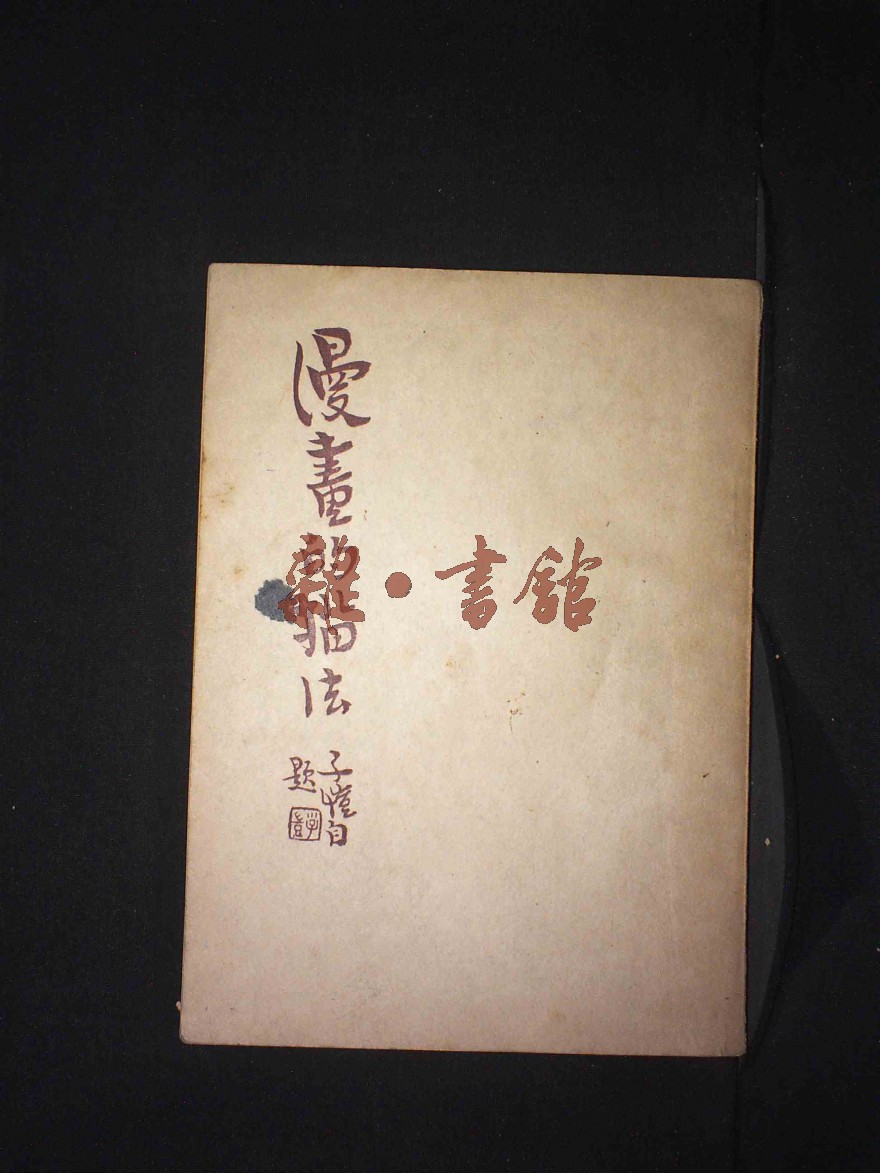 漫畫的描法
子愷自
題
雜·書館